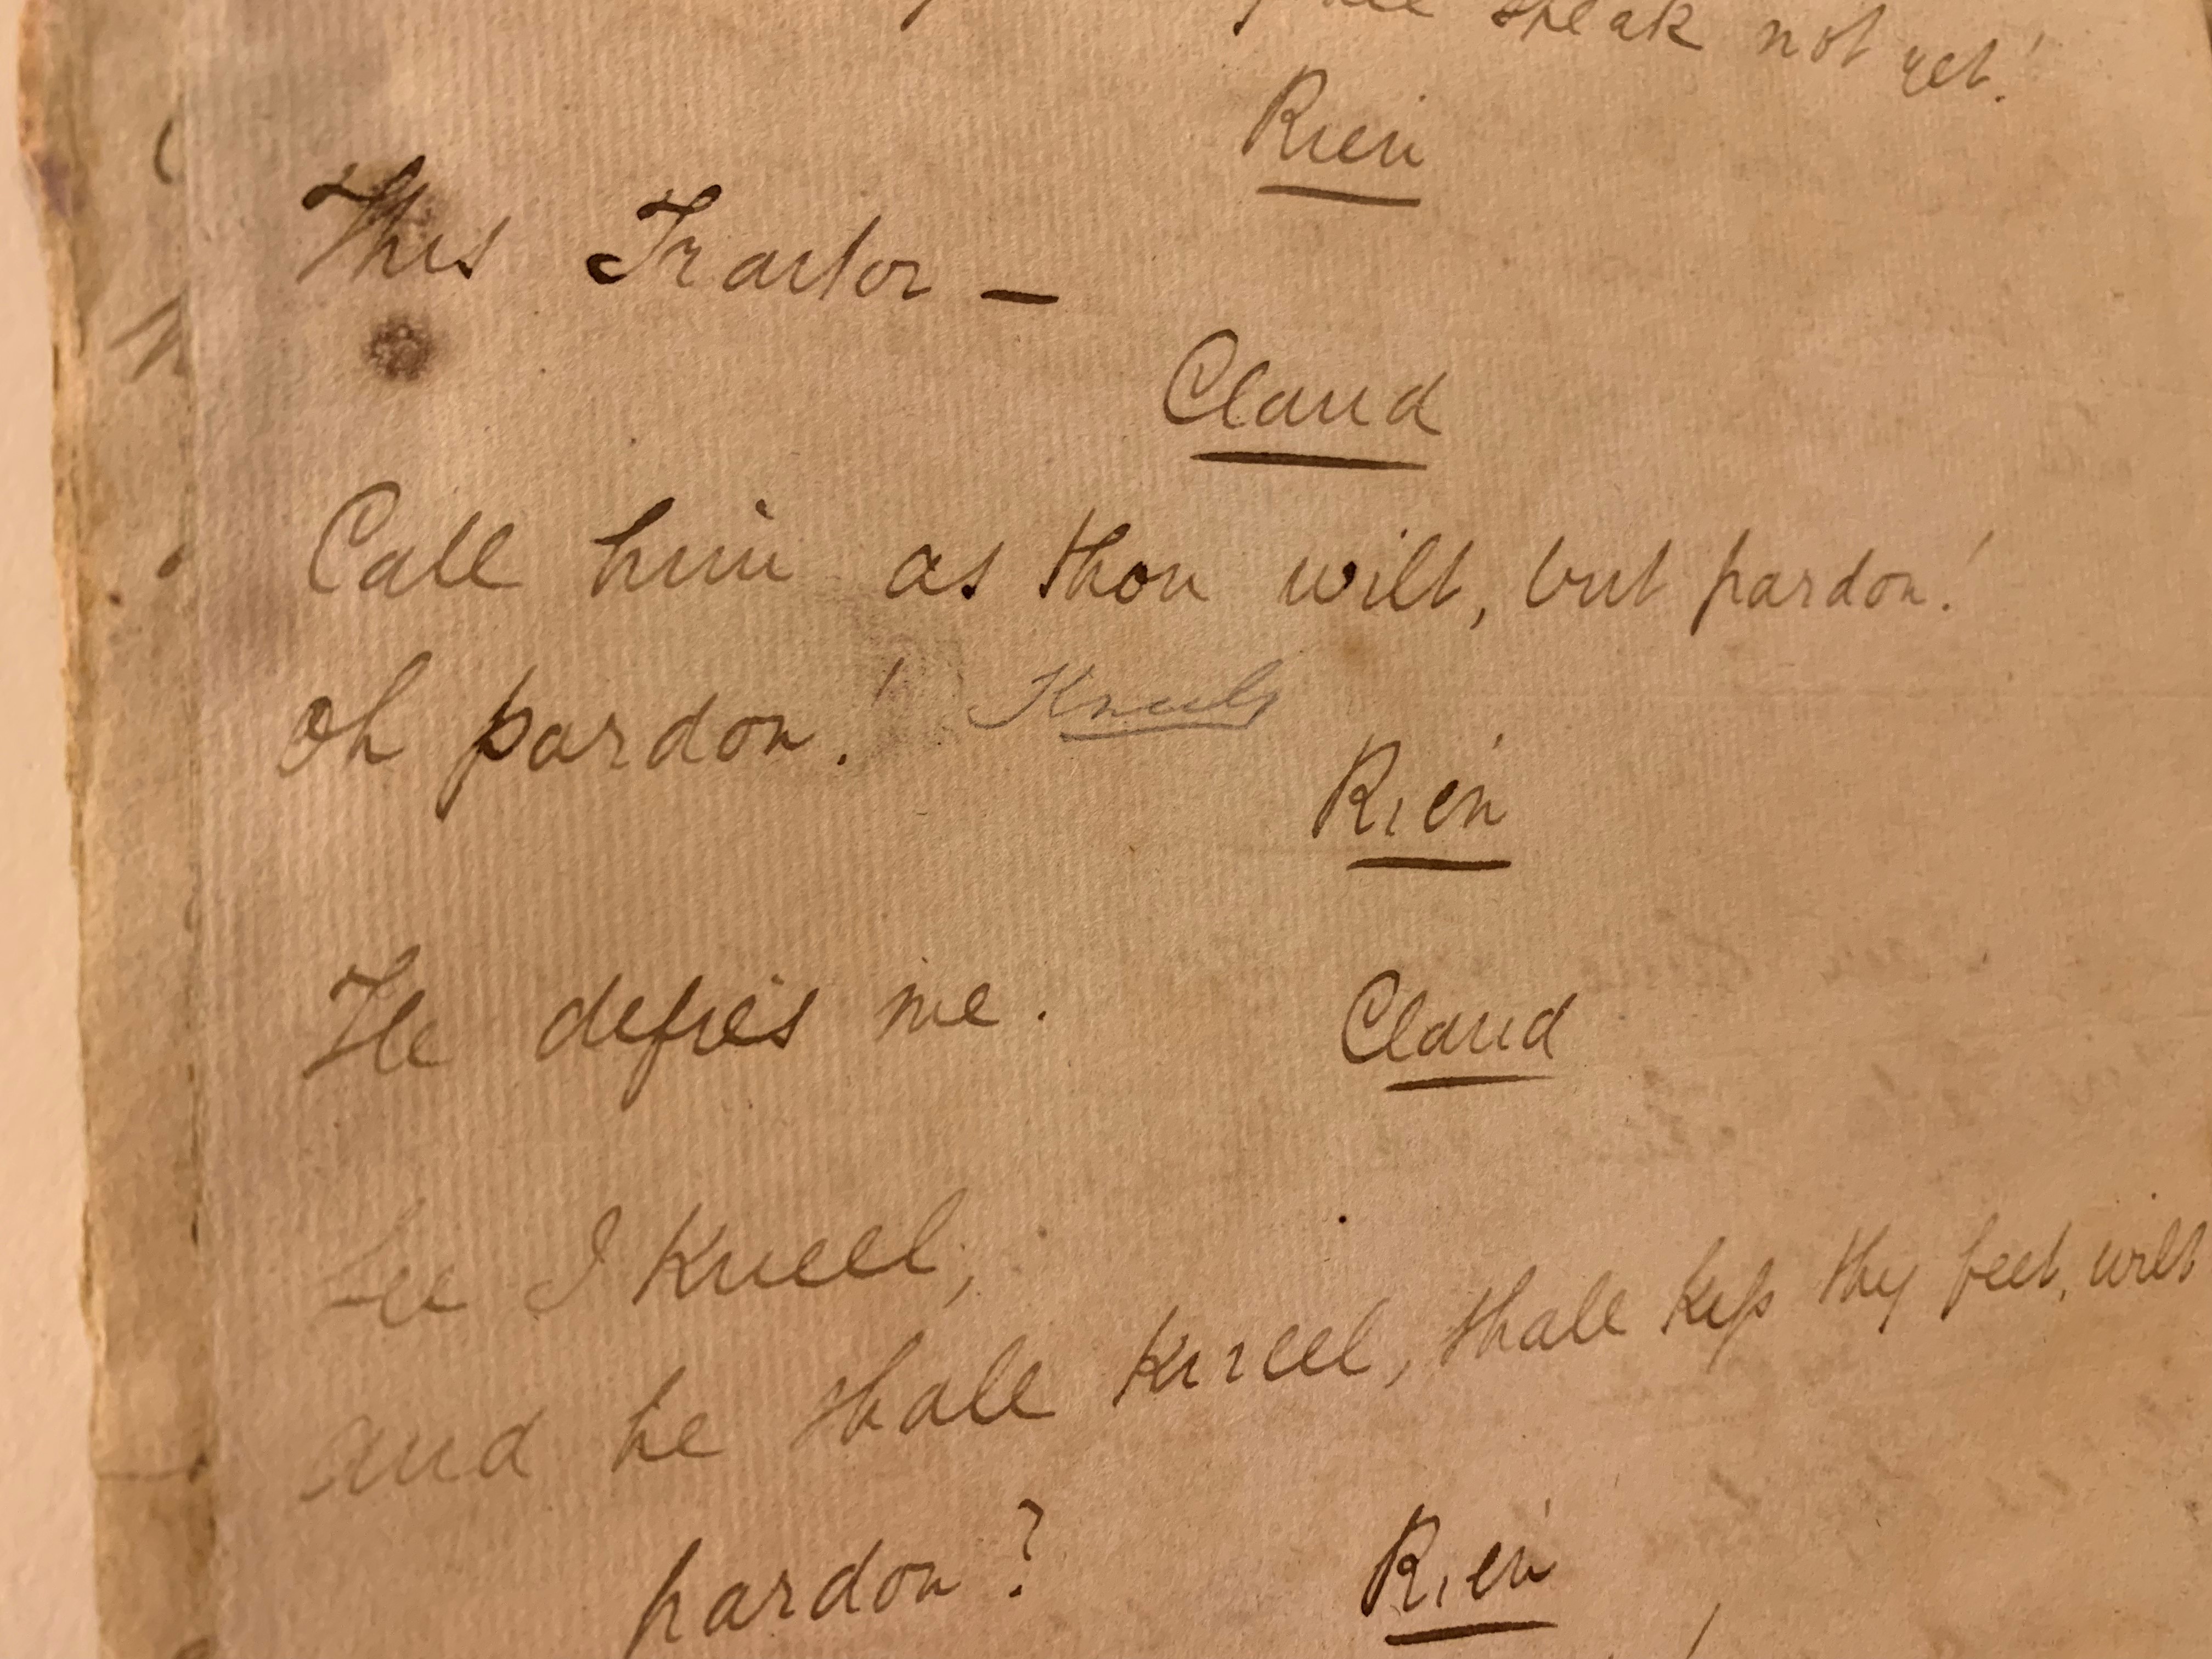 speak not yet!
Rien
This Traitor —
Claud
Call him as thou wilt, but pardon!
oh pardon! Kneels
Rien
He defies me.
Claud
See I kneel,
and he shall kneel, shall kiss thy feet, wilt
pardon?
Rien